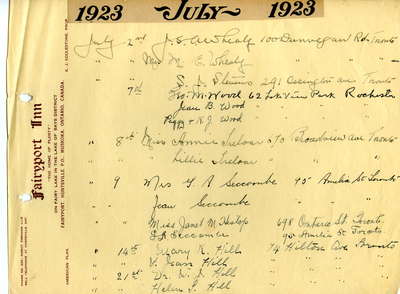 1923 JULY 1923
July 2nd J. S. A. Whealy 100 Dunvegan Rd. Toronto
" Mrs M. E. Whealy "
" S. J. Stevens 291 Ossington ave Toronto
" 7th Geo. M. Wood 62 Lake View Park Rochester
Jean B. Wood
Peggy + R. J. Wood "
" 8th Miss Annie Ireland 70 Broadview ave Toronto
" Lillie Ireland "
" 9 Mrs G. A. Seccombe 95 Amelia St Toronto
" Jean Seccombe
Miss Janet M. Heslop 698 Ontario St. Toronto
G A Seccombe 95 Amelia St Toronto
" 14th Mary K. Hill 74 Hilton Ave Toronto
" Jean Hill " "
" 21st Dr. H. Hill
" Helen L. Hill
Fairyport Inn
"THE HOME OF PLENTY"
ON FAIRY LAKE IN THE LAKE OF BAYS DISTRICT
FAIRYPORT HUNTSVILLE P.O., MUSKOKA, ONTARIO, CANADA
AMERICAN PLAN